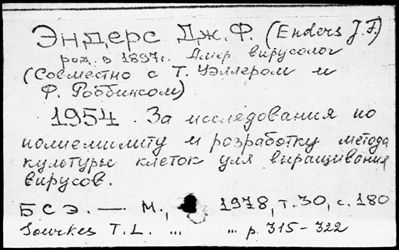 Эндерс Дж. Ф. (Enders J.F.)
род. в 1897 г. Амер вирусолог
(Совместно с Т. Уэллером и
Ф. Роббинсом)
1954. За исследования по
полиемилиту и розработку метода
культуры клеток для выращивание
вирусов.
БСЭ. — М., 1978, т. 30, с. 180
Sourkes T.L. ... ... p. 315-322